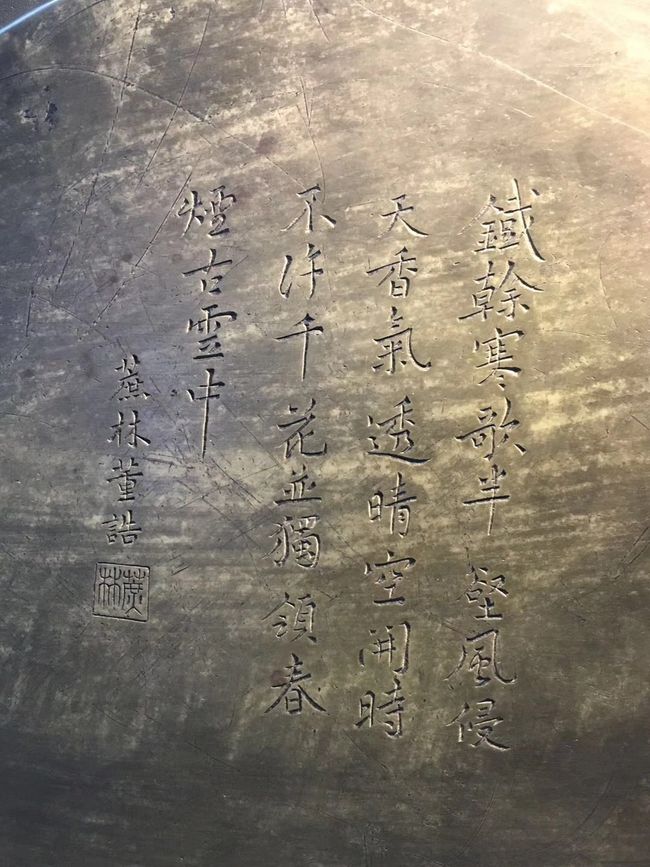 鐵幹寒歌半壑風侵
天香氣透晴空開時
不許千花並獨領春
煙古雲中
蔗林董誥
蔗林